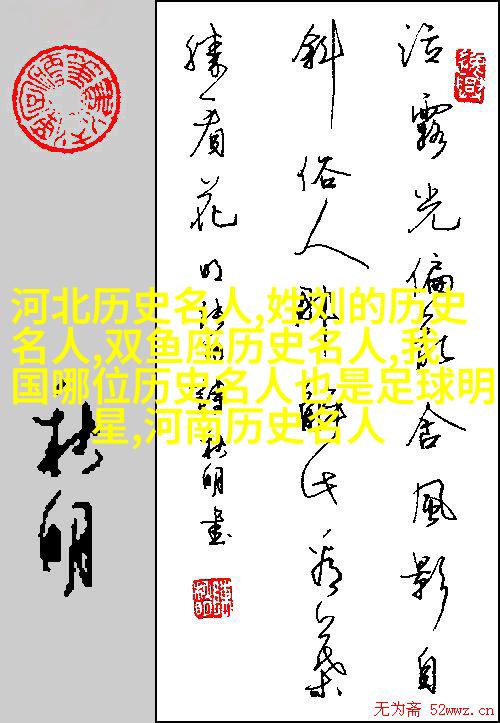 河北历史名人,姓刘的历史
名人,双鱼座历史名人,我
国哪位历史名人也是足球明
星,河南历史名人
沾露光偏乱含風影自
斜俗人那解此看葉
勝看花 明 詩 林明書
林明
无为斋 52wwz.cn